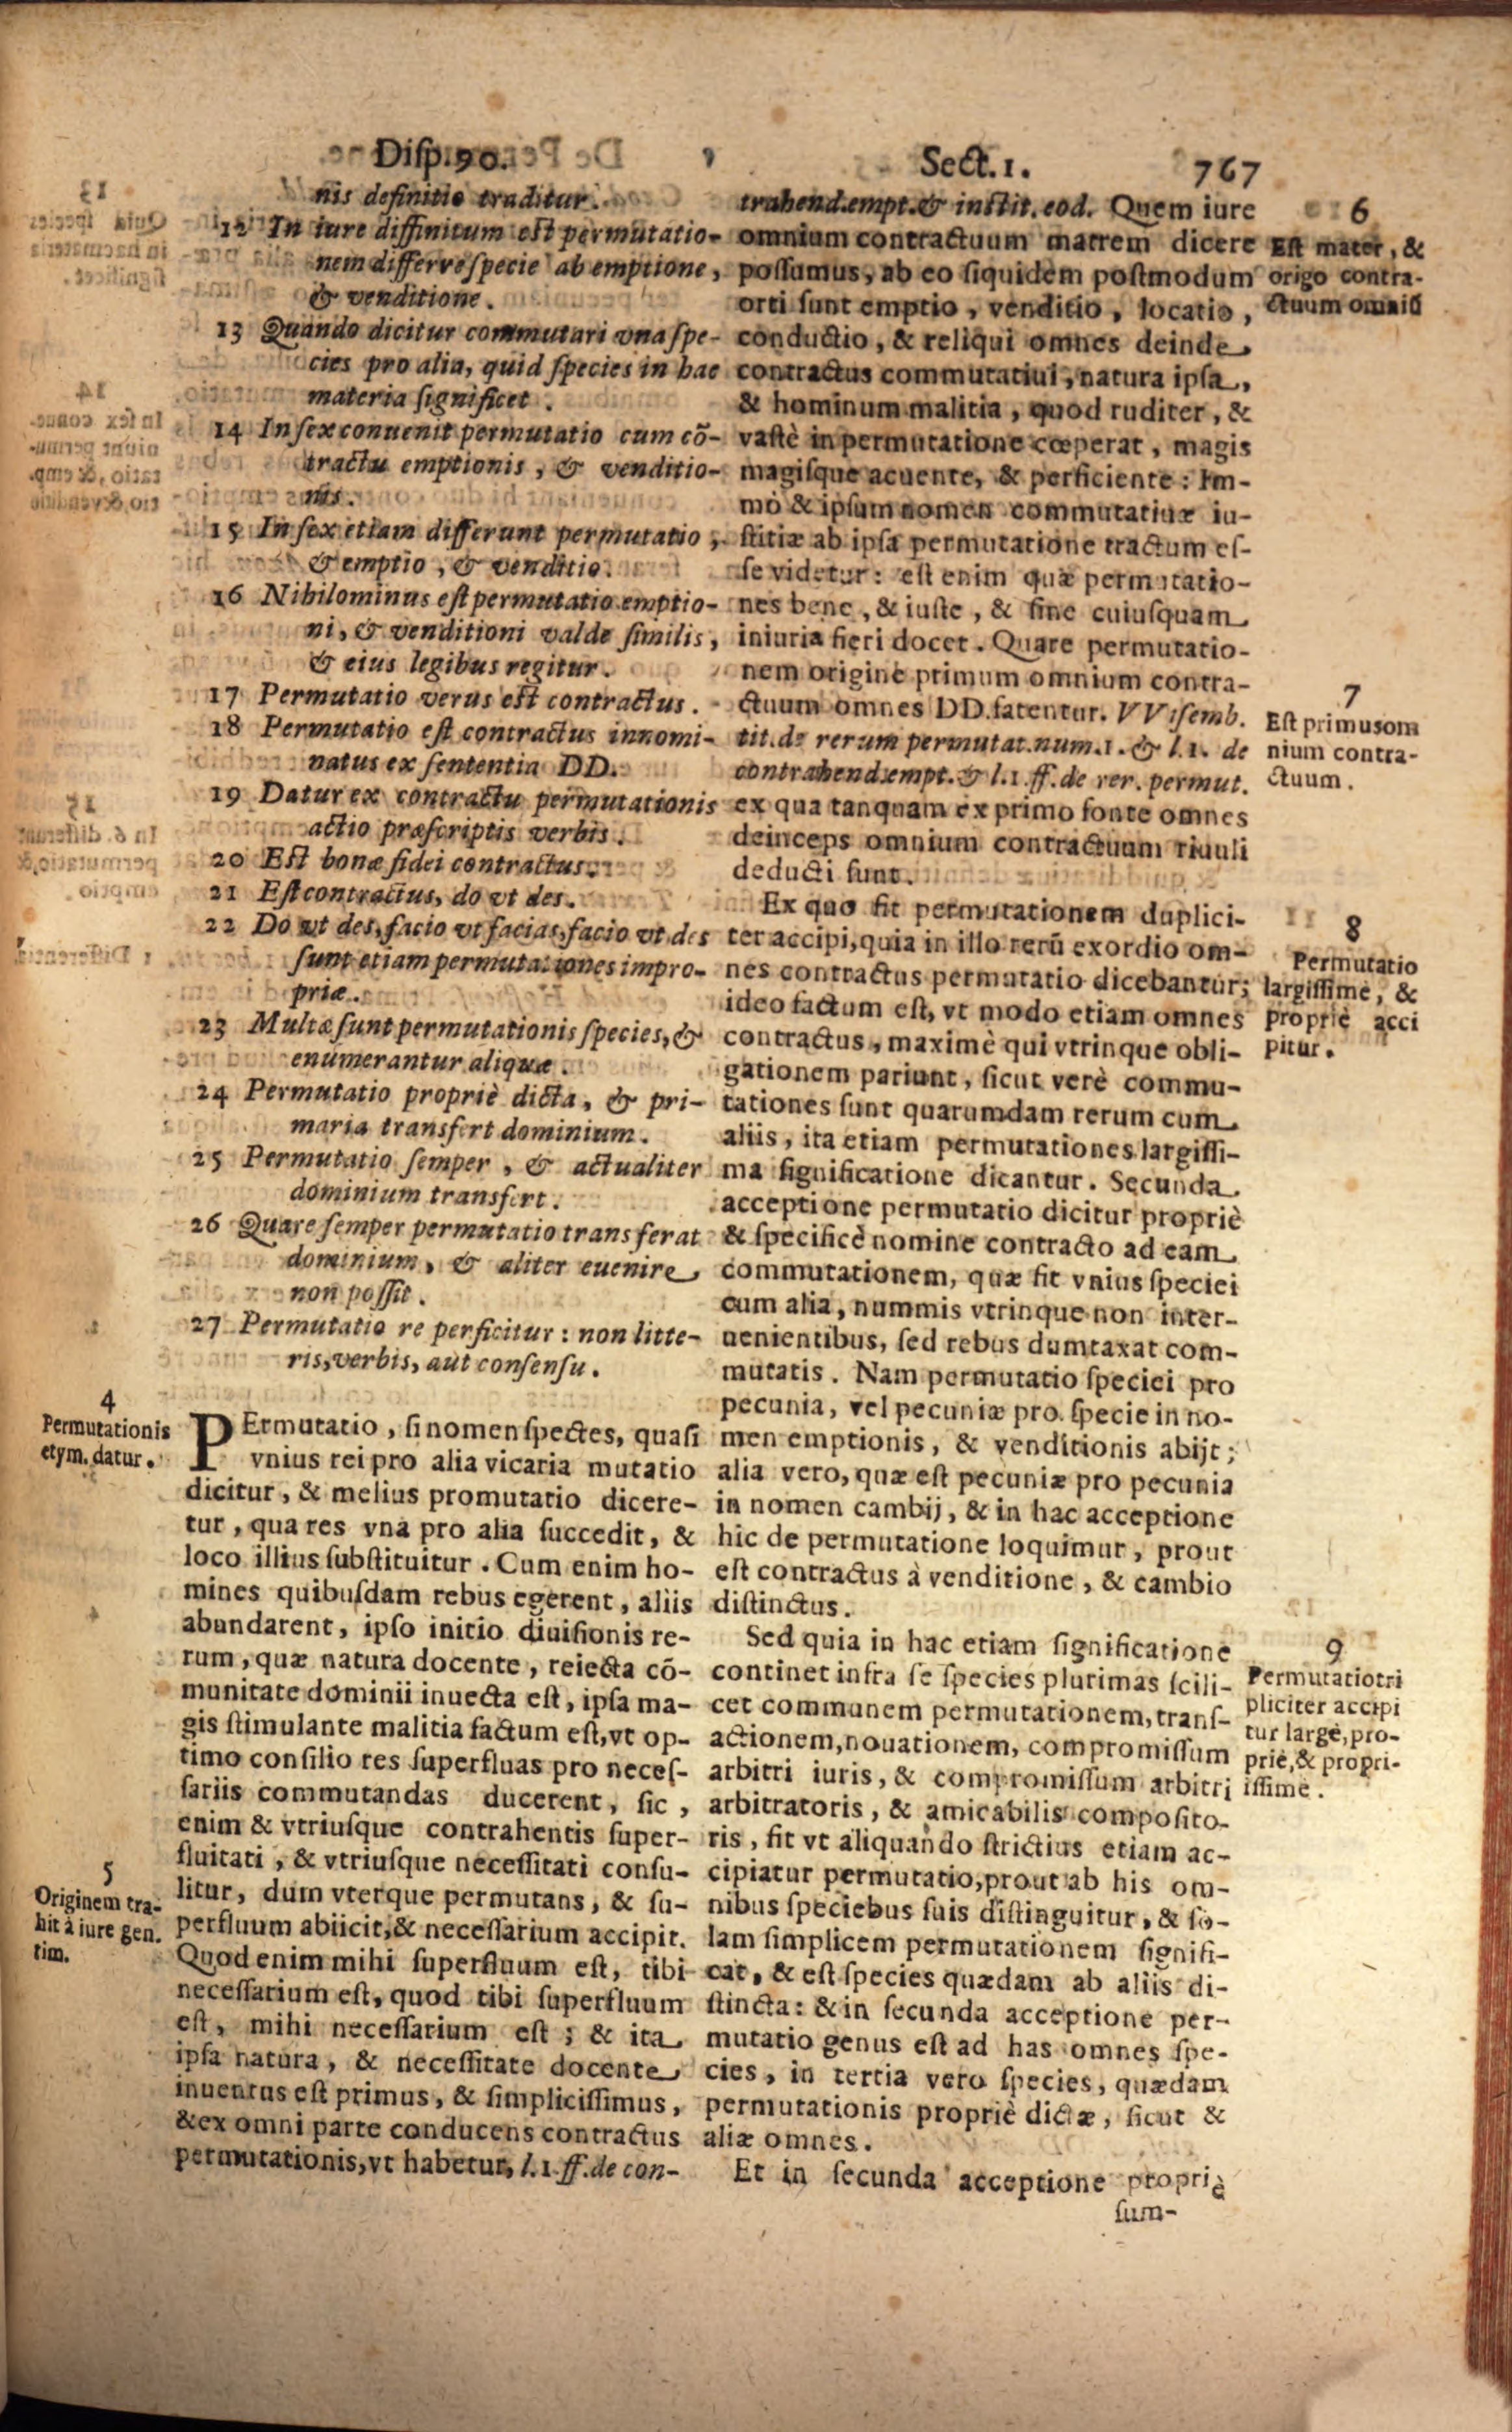 Disp. 90.
Sect. 1. 767
nis definitio traditur.
12 In iure diffinitum est permutatio-
nem differre specie ab emptione,
& venditione.
13 Quando dicitur commutari vna spe-
cies pro alia, quid species in hac
materia significet.
14 In sex conuenit permutatio cum cõ-
tractu emptionis, & venditio-
nis.
15 In sex etiam differunt permutatio,
& emptio, & venditio.
16 Nihilominus est permutatio emptio-
ni, & venditioni valde similis,
& eius legibus regitur.
17 Permutatio verus est contractus.
18 Permutatio est contractus innomi-
natus ex sententia DD.
19 Datur ex contractu permutationis
actio præscriptis verbis.
20 Est bonæ fidei contractus.
21 Est contractus, do vt des.
22 Do vt des, facio vt facias, facio vt des
sunt etiam permutationes impro-
priæ.
23 Multæ sunt permutationis species, &
enumerantur aliquæ.
24 Permutatio propriè dicta, & pri-
maria transfert dominium.
25 Permutatio semper, & actualiter
dominium transfert.
26 Quare semper permutatio transferat
dominium, & aliter euenire
non possit.
27 Permutatio re perficitur: non litte-
ris, verbis, aut consensu.
4
Permutationis
etym. datur.
PErmutatio, si nomen spectes, quasi
vnius rei pro alia vicaria mutatio
dicitur, & melius promutatio dicere-
tur, qua res vna pro alia succedit, &
loco illius substituitur. Cum enim ho-
mines quibusdam rebus egerent, aliis
abundarent, ipso initio diuisionis re-
rum, quæ natura docente, reiecta cõ-
munitate dominii inuecta est, ipsa ma-
gis stimulante malitia factum est, vt op-
timo consilio res superfluas pro neces-
sariis commutandas ducerent, sic,
enim & vtriusque contrahentis super-
fluitati, & vtriusque necessitati consu-
litur, dum vterque permutans, & su-
perfluum abiicit, & necessarium accipit.
Quod enim mihi superfluum est, tibi
necessarium est, quod tibi superfluum
est, mihi necessarium est; & ita
ipsa natura, & necessitate docente
inuentus est primus, & simplicissimus,
& ex omni parte conducens contractus
permutationis, vt habetur, l. 1. ff. de con-
5
Originem tra-
hit à iure gen.
tim.
trahend. empt. & instit. eod. Quem iure
omnium contractuum matrem dicere
possumus, ab eo siquidem postmodum
orti sunt emptio, venditio, locatio,
conductio, & reliqui omnes deinde
contractus commutatiui, natura ipsa,
& hominum malitia, quod ruditer, &
vastè in permutatione cœperat, magis
magisque acuente, & perficiente: Im-
mò & ipsum nomen commutatiuæ iu-
stitiæ ab ipsa permutatione tractum es-
se videtur: est enim quæ permutatio-
nes bene, & iuste, & sine cuiusquam
iniuria fieri docet. Quare permutatio-
nem origine primum omnium contra-
ctuum omnes DD. fatentur. VVisemb.
tit. de rerum permutat. num. 1. & l. 1. de
contrahend. empt. & l. 1. ff. de rer. permut.
ex qua tanquam ex primo fonte omnes
deinceps omnium contractuum riuuli
deducti sunt.
Ex quo fit permutationem duplici-
ter accipi, quia in illo rerũ exordio om-
nes contractus permutatio dicebantur;
ideo factum est, vt modo etiam omnes
contractus, maximè qui vtrinque obli-
gationem pariunt, sicut verè commu-
tationes sunt quarumdam rerum cum
aliis, ita etiam permutationes largissi-
ma significatione dicantur. Secunda
acceptione permutatio dicitur propriè
& specificè nomine contracto ad eam
commutationem, quæ fit vnius speciei
cum alia, nummis vtrinque non inter-
uenientibus, sed rebus dumtaxat com-
mutatis. Nam permutatio speciei pro
pecunia, vel pecuniæ pro specie in no-
men emptionis, & venditionis abijt;
alia vero, quæ est pecuniæ pro pecunia
in nomen cambij, & in hac acceptione
hic de permutatione loquimur, prout
est contractus à venditione, & cambio
distinctus.
Sed quia in hac etiam significatione
continet infra se species plurimas scili-
cet communem permutationem, trans-
actionem, nouationem, compromissum
arbitri iuris, & compromissum arbitri
arbitratoris, & amicabilis composito-
ris, fit vt aliquando strictius etiam ac-
cipiatur permutatio, prout ab his om-
nibus speciebus suis distinguitur, & so-
lam simplicem permutationem signifi-
cat, & est species quædam ab aliis di-
stincta: & in secunda acceptione per-
mutatio genus est ad has omnes spe-
cies, in tertia vero species, quædam
permutationis propriè dictæ, sicut &
aliæ omnes.
Et in secunda acceptione propriè
sum-
6
Est mater, &
origo contra-
ctuum omniũ
7
Est primus om
nium contra-
ctuum.
8
Permutatio
largissime, &
propriè acci
pitur.
9
Permutatio tri
pliciter accipi
tur largè, pro-
priè, & propri-
issimè.